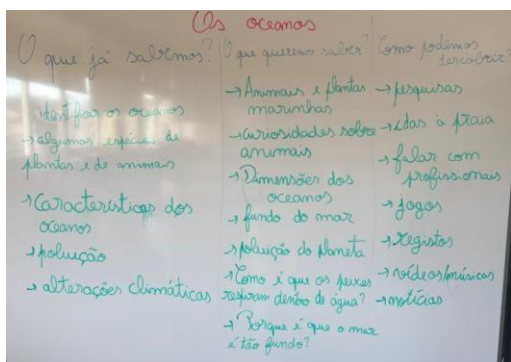 Os oceanos
O que já sabemos?
identificar os oceanos
→ algumas espécies de
plantas e de animais
→ Características dos
oceanos
→ poluição
→ alterações climáticas
O que queremos saber?
→ Animais e plantas
marinhas
→ curiosidades sobre
animais
→ Dimensões dos
oceanos
→ fundo do mar
→ poluição do planeta
→ Como é que os peixes
respiram dentro de água?
→ Porque é que o mar
é tão fundo?
Como podemos
descobrir?
→ pesquisas
→ idas à praia
→ falar com
profissionais
→ jogos
→ registos
→ vídeos/músicas
→ notícias